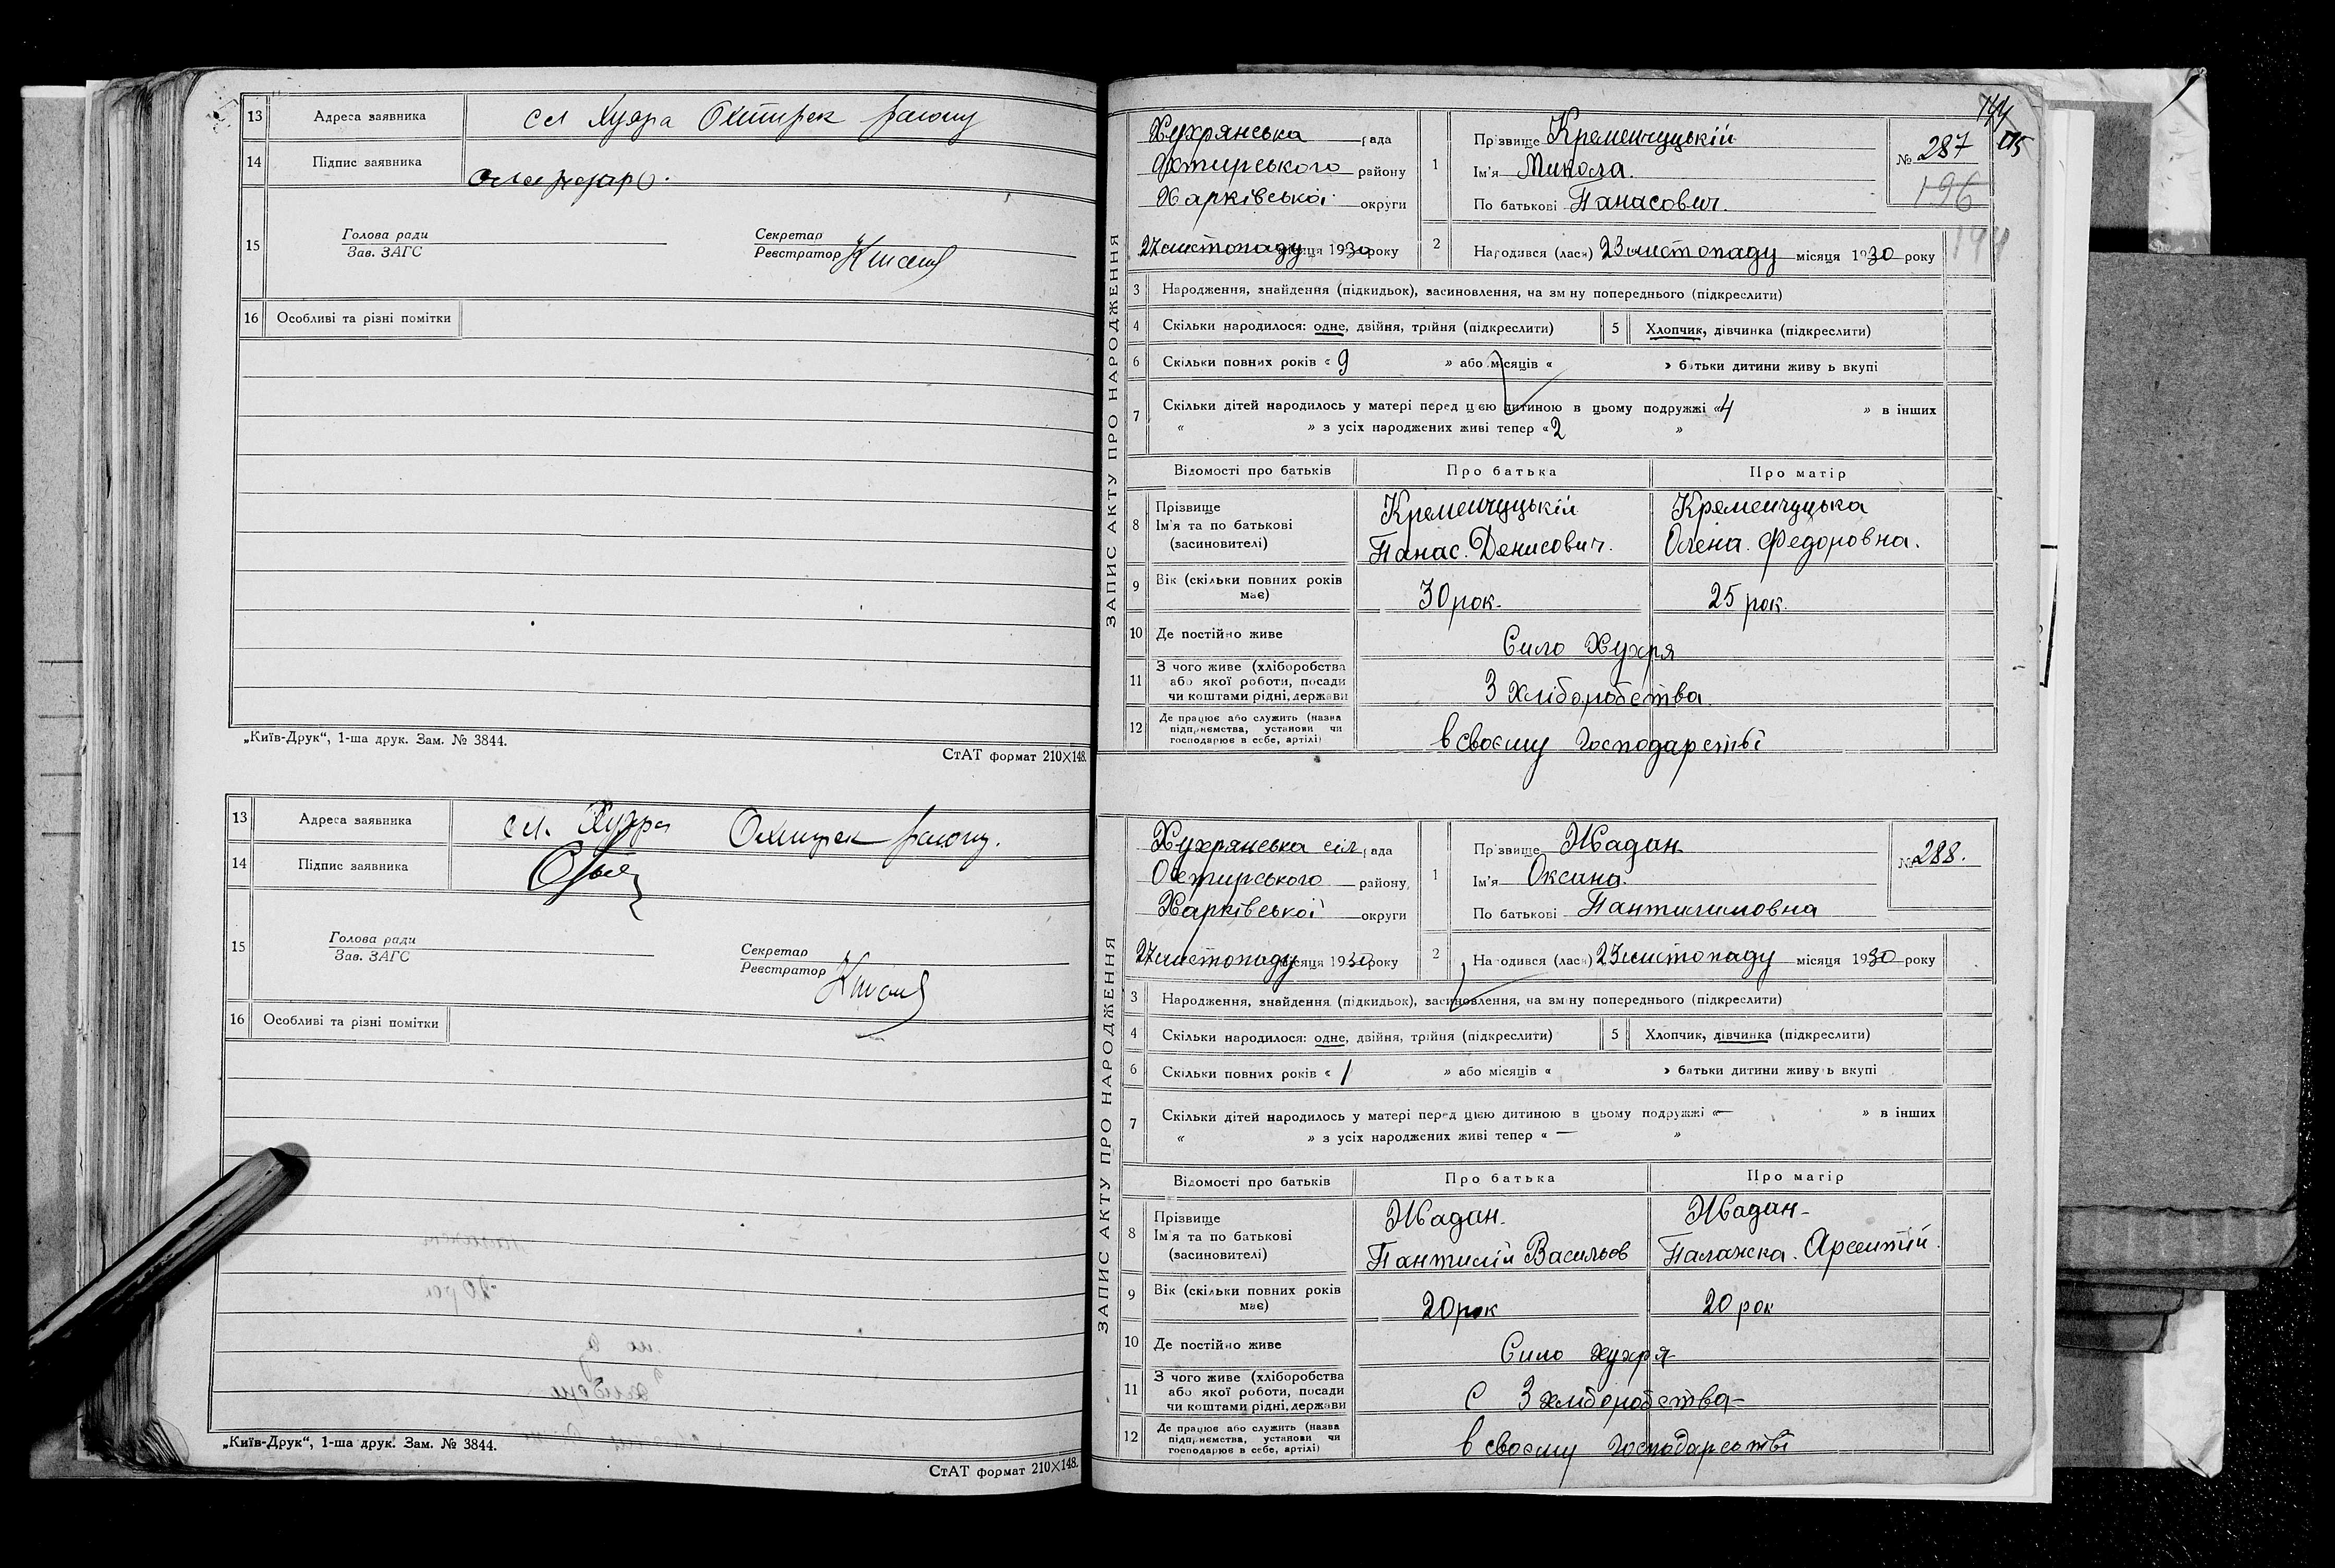 13 Адреса заявника сел Хухра Охтирск району
14 Підпис заявника
15 Голова ради
Зав. ЗАГС
Секретар
Реєстратор
16 Особливі та різні помітки
„Київ-Друк“, 1-ша друк. Зам. № 3844.
СтАТ формат 210×148.
13 Адреса заявника сел. Хухра Охтирск району.
14 Підпис заявника
15 Голова ради
Зав. ЗАГС
Секретар
Реєстратор
16 Особливі та різні помітки
„Київ-Друк“, 1-ша друк. Зам. № 3844.
СтАТ формат 210×148.
ЗАПИС АКТУ ПРО НАРОДЖЕННЯ
Хухрянська рада
Охтирського району
Харківської округи
27 листопаду місяця 1930 року
1 Прізвище Кременчуцькій
Ім'я Микола.
По батькові Панасович.
№ 287
196
2 Народився (лася) 23 листопаду місяця 1930 року
3 Народження, знайдення (підкидьок), засиновлення, на зміну попереднього (підкреслити)
4 Скільки народилося: одне, двійня, трійня (підкреслити)
5 Хлопчик, дівчинка (підкреслити)
6 Скільки повних років « 9 » або місяців « » батьки дитини живуть вкупі
7 Скільки дітей народилось у матері перед цією дитиною в цьому подружжі «4 » в інших
« » з усіх народжених живі тепер «2 »
Відомості про батьків Про батька Про матір
8 Прізвище
Ім'я та по батькові
(засиновителі)
Кременчуцькій
Панас. Денисович.
Кременчуцька
Олена. Федоровна.
9 Вік (скільки повних років має) 30 рок. 25 рок.
10 Де постійно живе Сило Хухря
11 З чого живе (хліборобства
або якої роботи, посади
чи коштами рідні, держави
З хліборобства.
12 Де працює або служить (назва
підприємства, установи чи
господарює в себе, артілі)
в своєму господарстві
ЗАПИС АКТУ ПРО НАРОДЖЕННЯ
Хухрянська сіл рада
Охтирського району,
Харківської округи
27 листопаду місяця 1930 року
1 Прізвище Жадан
Ім'я Оксана.
По батькові Пантилимовна
№ 288.
2 Народився (лася) 23 листопаду місяця 1930 року
3 Народження, знайдення (підкидьок), засиновлення, на зміну попереднього (підкреслити)
4 Скільки народилося: одне, двійня, трійня (підкреслити)
5 Хлопчик, дівчинка (підкреслити)
6 Скільки повних років « 1 » або місяців « » батьки дитини живуть вкупі
7 Скільки дітей народилось у матері перед цією дитиною в цьому подружжі «— » в інших
« » з усіх народжених живі тепер « — »
Відомості про батьків Про батька Про матір
8 Прізвище
Ім'я та по батькові
(засиновителі)
Жадан.
Пантилій Васильов
Жадан-
Палажка. Арсентій.
9 Вік (скільки повних років має) 20 рок 20 рок
10 Де постійно живе Сило Хухря
11 З чого живе (хліборобства
або якої роботи, посади
чи коштами рідні, держави
С З хліборобства
12 Де працює або служить (назва
підприємства, установи чи
господарює в себе, артілі)
в своєму господарстві